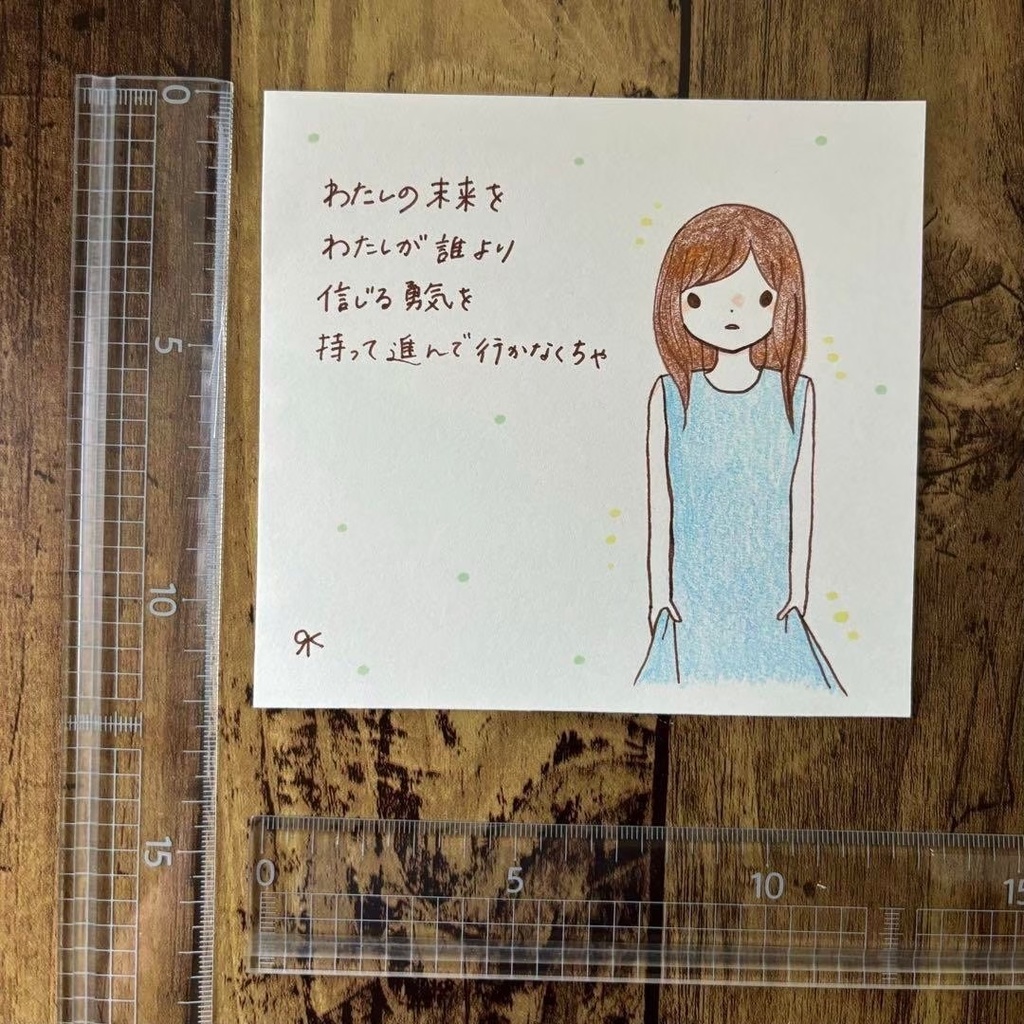 わたしの未来を
わたしが誰より
信じる勇気を
持って進んで行かなくちゃ
0
5
10
15
0
5
10
15